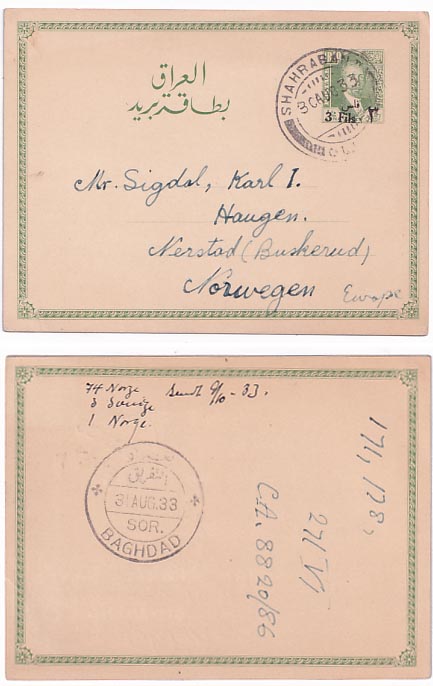 العراق
بطاقة بريد
SHAHRABAN
AUG 33
فلس
3 Fils ٣
Mr. Sigdal, Karl I.
Haugen.
Nerstad (Buskerud)
Norwegen
Europe
74 Norge
1 Norge.
Sendt 9/10 - 33.
التفريق
31 AUG. 33
SOR.
BAGHDAD
271 VI
C.A. 8820/86